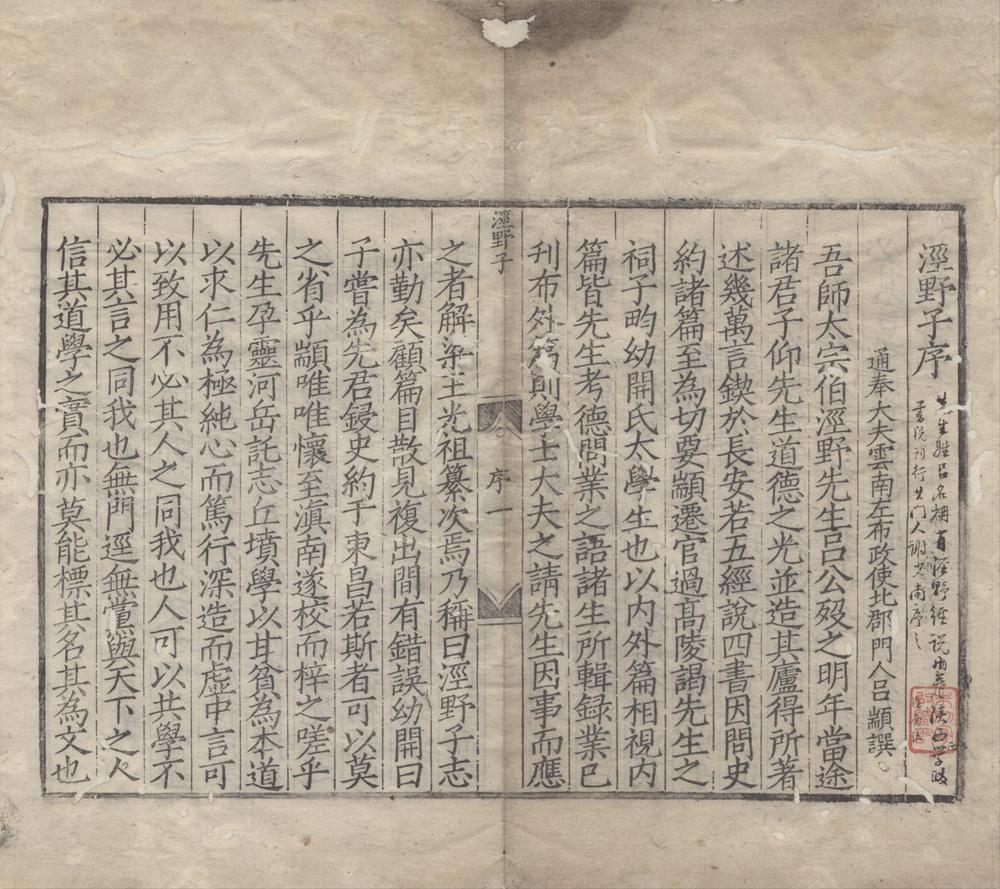 涇野子序
先生姓呂名柟有涇野經說
書院刊行其門人謝
通奉大夫雲南左布政使北郡門人呂顓譔
吾師太宗伯涇野先生呂公歿之明年當途
諸君子仰先生道德之光並造其廬得所著
述幾萬言鍥於長安若五經說四書因問史
約諸篇至為切要顓遷官過高陵謁先生之
祠子畇幼開氏太學生也以內外篇相視內
篇皆先生考德問業之語諸生所輯録業已
刋布外篇則學士大夫之請先生因事而應
涇野子
序一
之者解梁王光祖纂次焉乃稱曰涇野子志
亦勤矣顧篇目散見複出間有錯誤幼開曰
子嘗為先君鋟史約于東昌若斯者可以莫
之省乎顓唯唯懷至滇南遂校而梓之嗟乎
先生孕靈河岳託志丘墳學以甘貧為本道
以求仁為極純心而篤行深造而虛中言可
以致用不必其人之同我也人可以共學不
必其言之同我也無門逕無黨與天下之人
信其道學之實而亦莫能標其名其為文也